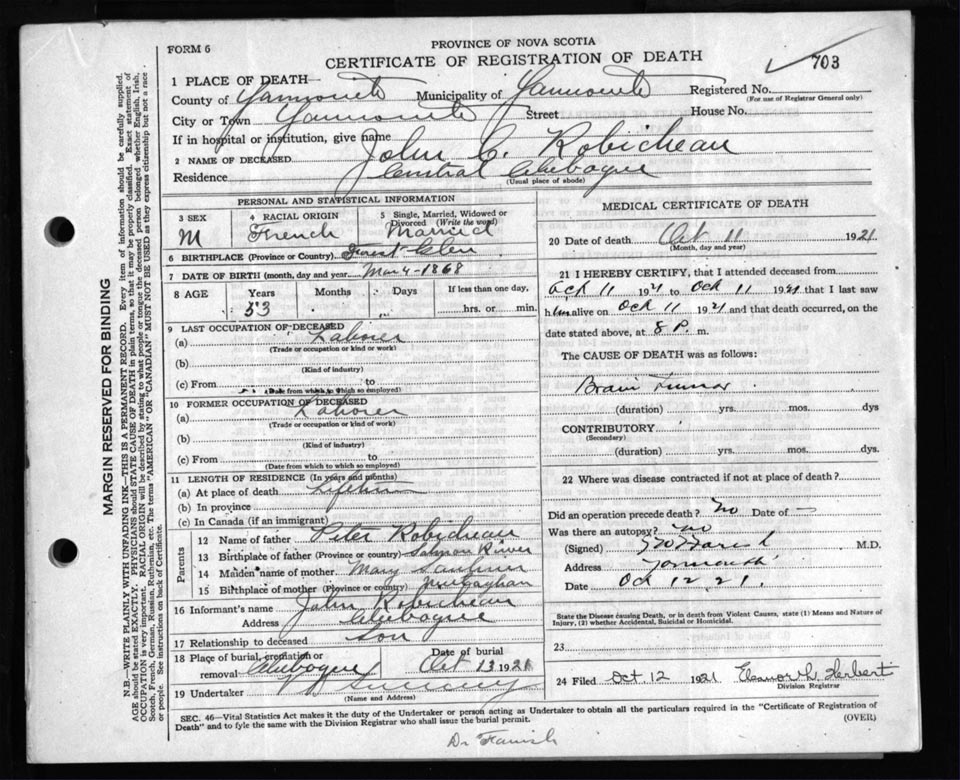 FORM 6
PROVINCE OF NOVA SCOTIA
CERTIFICATE OF REGISTRATION OF DEATH
703
1 PLACE OF DEATH—
County of Yarmouth Municipality of Yarmouth Registered No.
(For use of Registrar General only)
City or Town Yarmouth Street House No.
If in hospital or institution, give name
2 NAME OF DECEASED John C. Robicheau
Residence Central Chebogue
(Usual place of abode)
PERSONAL AND STATISTICAL INFORMATION
3 SEX M
4 RACIAL ORIGIN French
5 Single, Married, Widowed or Divorced (Write the word) Married
6 BIRTHPLACE (Province or Country) Forest Glen
7 DATE OF BIRTH (month, day and year) Mar 4-1868
8 AGE Years 53 Months Days If less than one day, hrs. or min.
9 LAST OCCUPATION OF DECEASED
(a) Laborer
(Trade or occupation or kind of work)
(b)
(Kind of industry)
(c) From to
(Date from which to which so employed)
10 FORMER OCCUPATION OF DECEASED
(a) Laborer
(Trade or occupation or kind of work)
(b)
(Kind of industry)
(c) From to
(Date from which to which so employed)
11 LENGTH OF RESIDENCE (In years and months)
(a) At place of death Lifetime
(b) In province
(c) In Canada (if an immigrant)
Parents
12 Name of father Peter Robicheau
13 Birthplace of father (Province or country) Salmon River
14 Maiden name of mother Mary Saulnier
15 Birthplace of mother (Province or country)
16 Informant's name John Robicheau
Address Chebogue
17 Relationship to deceased Son
18 Place of burial, cremation or removal Chebogue Oct 13 1921
19 Undertaker
(Name and Address)
MEDICAL CERTIFICATE OF DEATH
20 Date of death Oct 11 1921
(Month, day and year)
21 I HEREBY CERTIFY, that I attended deceased from
Oct 11 1921 to Oct 11 1921 that I last saw
him alive on Oct 11 1921 and that death occurred, on the
date stated above, at 8 P. m.
The CAUSE OF DEATH was as follows:
Brain Tumor
(duration) yrs. mos. dys
CONTRIBUTORY
(Secondary)
(duration) yrs. mos. dys.
22 Where was disease contracted if not at place of death?
Did an operation precede death? No Date of —
Was there an autopsy? No
(Signed) M.D.
Address Yarmouth
Date Oct 12 21.
State the Disease causing Death, or in death from Violent Causes, state (1) Means and Nature of
Injury, (2) whether Accidental, Suicidal or Homicidal.
23
24 Filed Oct 12 1921 Eleanor L. Herbert
Division Registrar
SEC. 46—Vital Statistics Act makes it the duty of the Undertaker or person acting as Undertaker to obtain all the particulars required in the "Certificate of Registration of
Death" and to fyle the same with the Division Registrar who shall issue the burial permit.
(OVER)
Dr
MARGIN RESERVED FOR BINDING
N.B.—WRITE PLAINLY WITH UNFADING INK—THIS IS A PERMANENT RECORD. Every item of information should be carefully supplied.
AGE should be stated EXACTLY. PHYSICIANS should STATE CAUSE OF DEATH in plain terms, so that it may be properly classified. Exact statement of
OCCUPATION is very important. RACIAL ORIGIN will be described by stating to what people or tongue the deceased person belonged whether English, Irish,
Scotch, French, German, Russian, Ruthenian, etc. The terms "AMERICAN" OR "CANADIAN" MUST NOT BE USED as they express citizenship but not a race
or people. See instructions on back of Certificate.